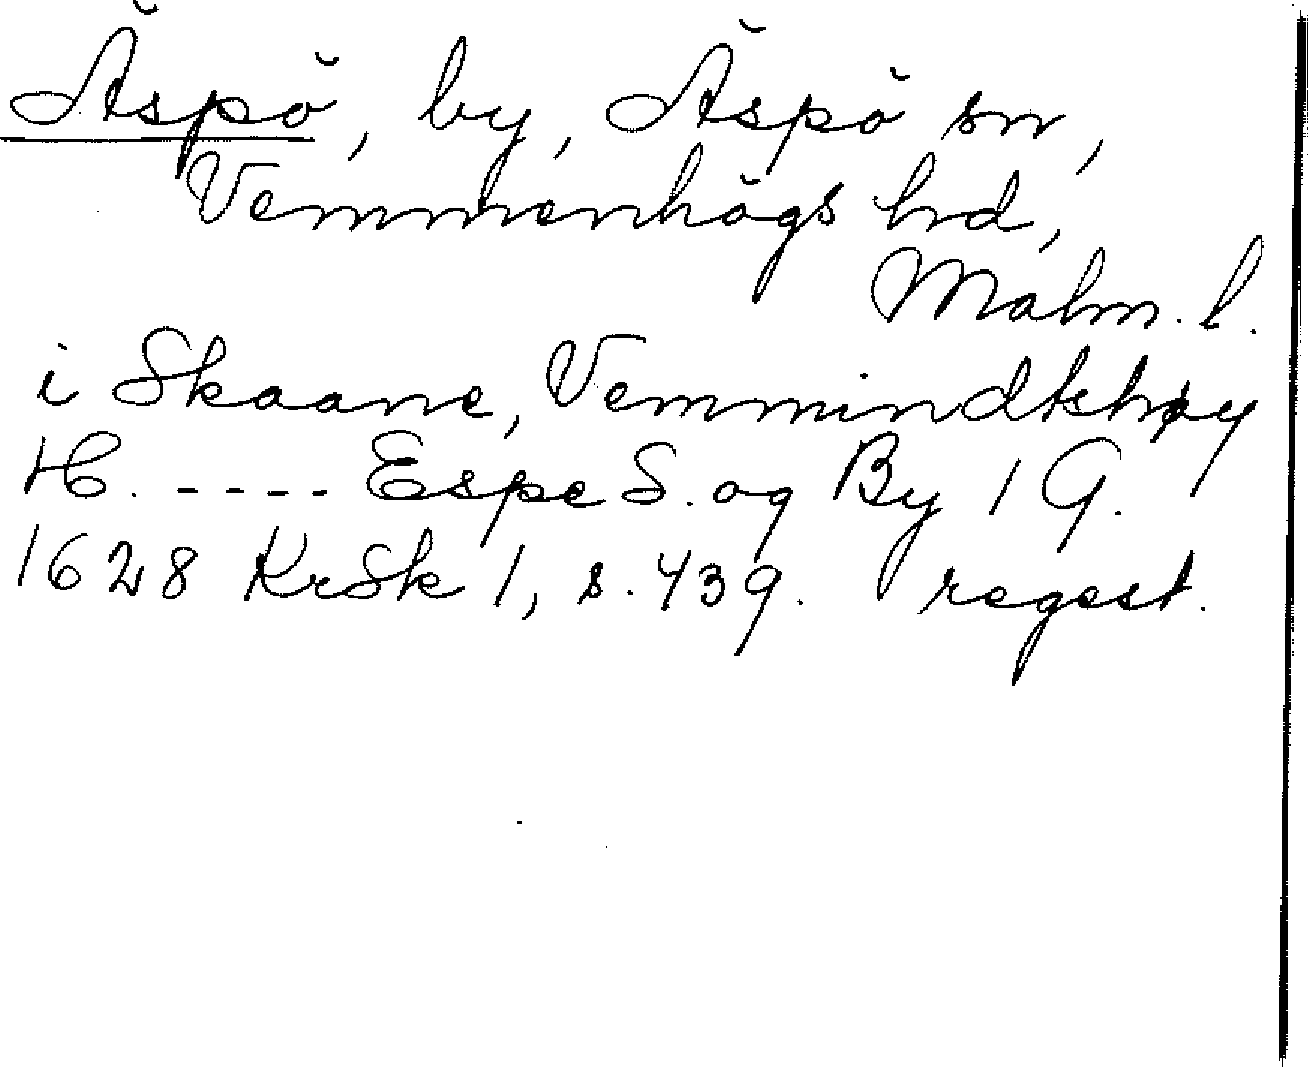 Äspö, by, Äspö sn,
Vemmenhögs hd,
Malm. l.
i Skaane, Vemmindtkhøy
H. ---- Espe S. og By 1 G.
1628 KrSk 1, s. 439. regest.